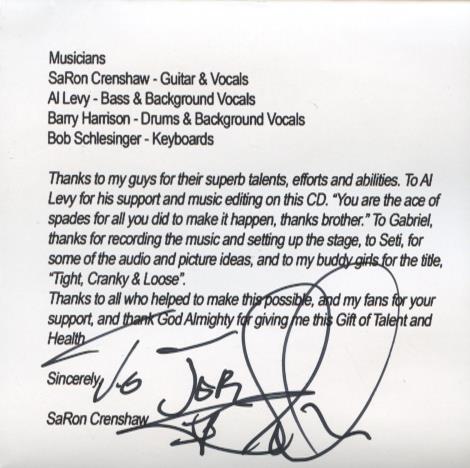 Musicians
SaRon Crenshaw - Guitar & Vocals
Al Levy - Bass & Background Vocals
Barry Harrison - Drums & Background Vocals
Bob Schlesinger - Keyboards
Thanks to my guys for their superb talents, efforts and abilities. To Al
Levy for his support and music editing on this CD. "You are the ace of
spades for all you did to make it happen, thanks brother." To Gabriel,
thanks for recording the music and setting up the stage, to Seti, for
some of the audio and picture ideas, and to my buddy girls for the title,
"Tight, Cranky & Loose".
Thanks to all who helped to make this possible, and my fans for your
support, and thank God Almighty for giving me this Gift of Talent and
Health
Sincerely
SaRon Crenshaw